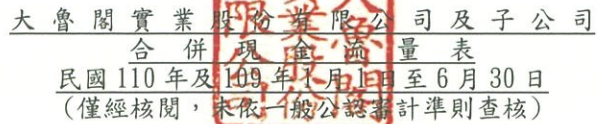 大魯閣實業股份有限公司及子公司
合併現金流量表
民國110年及109年1月1日至6月30日
(僅經核閱，未依一般公認審計準則查核)